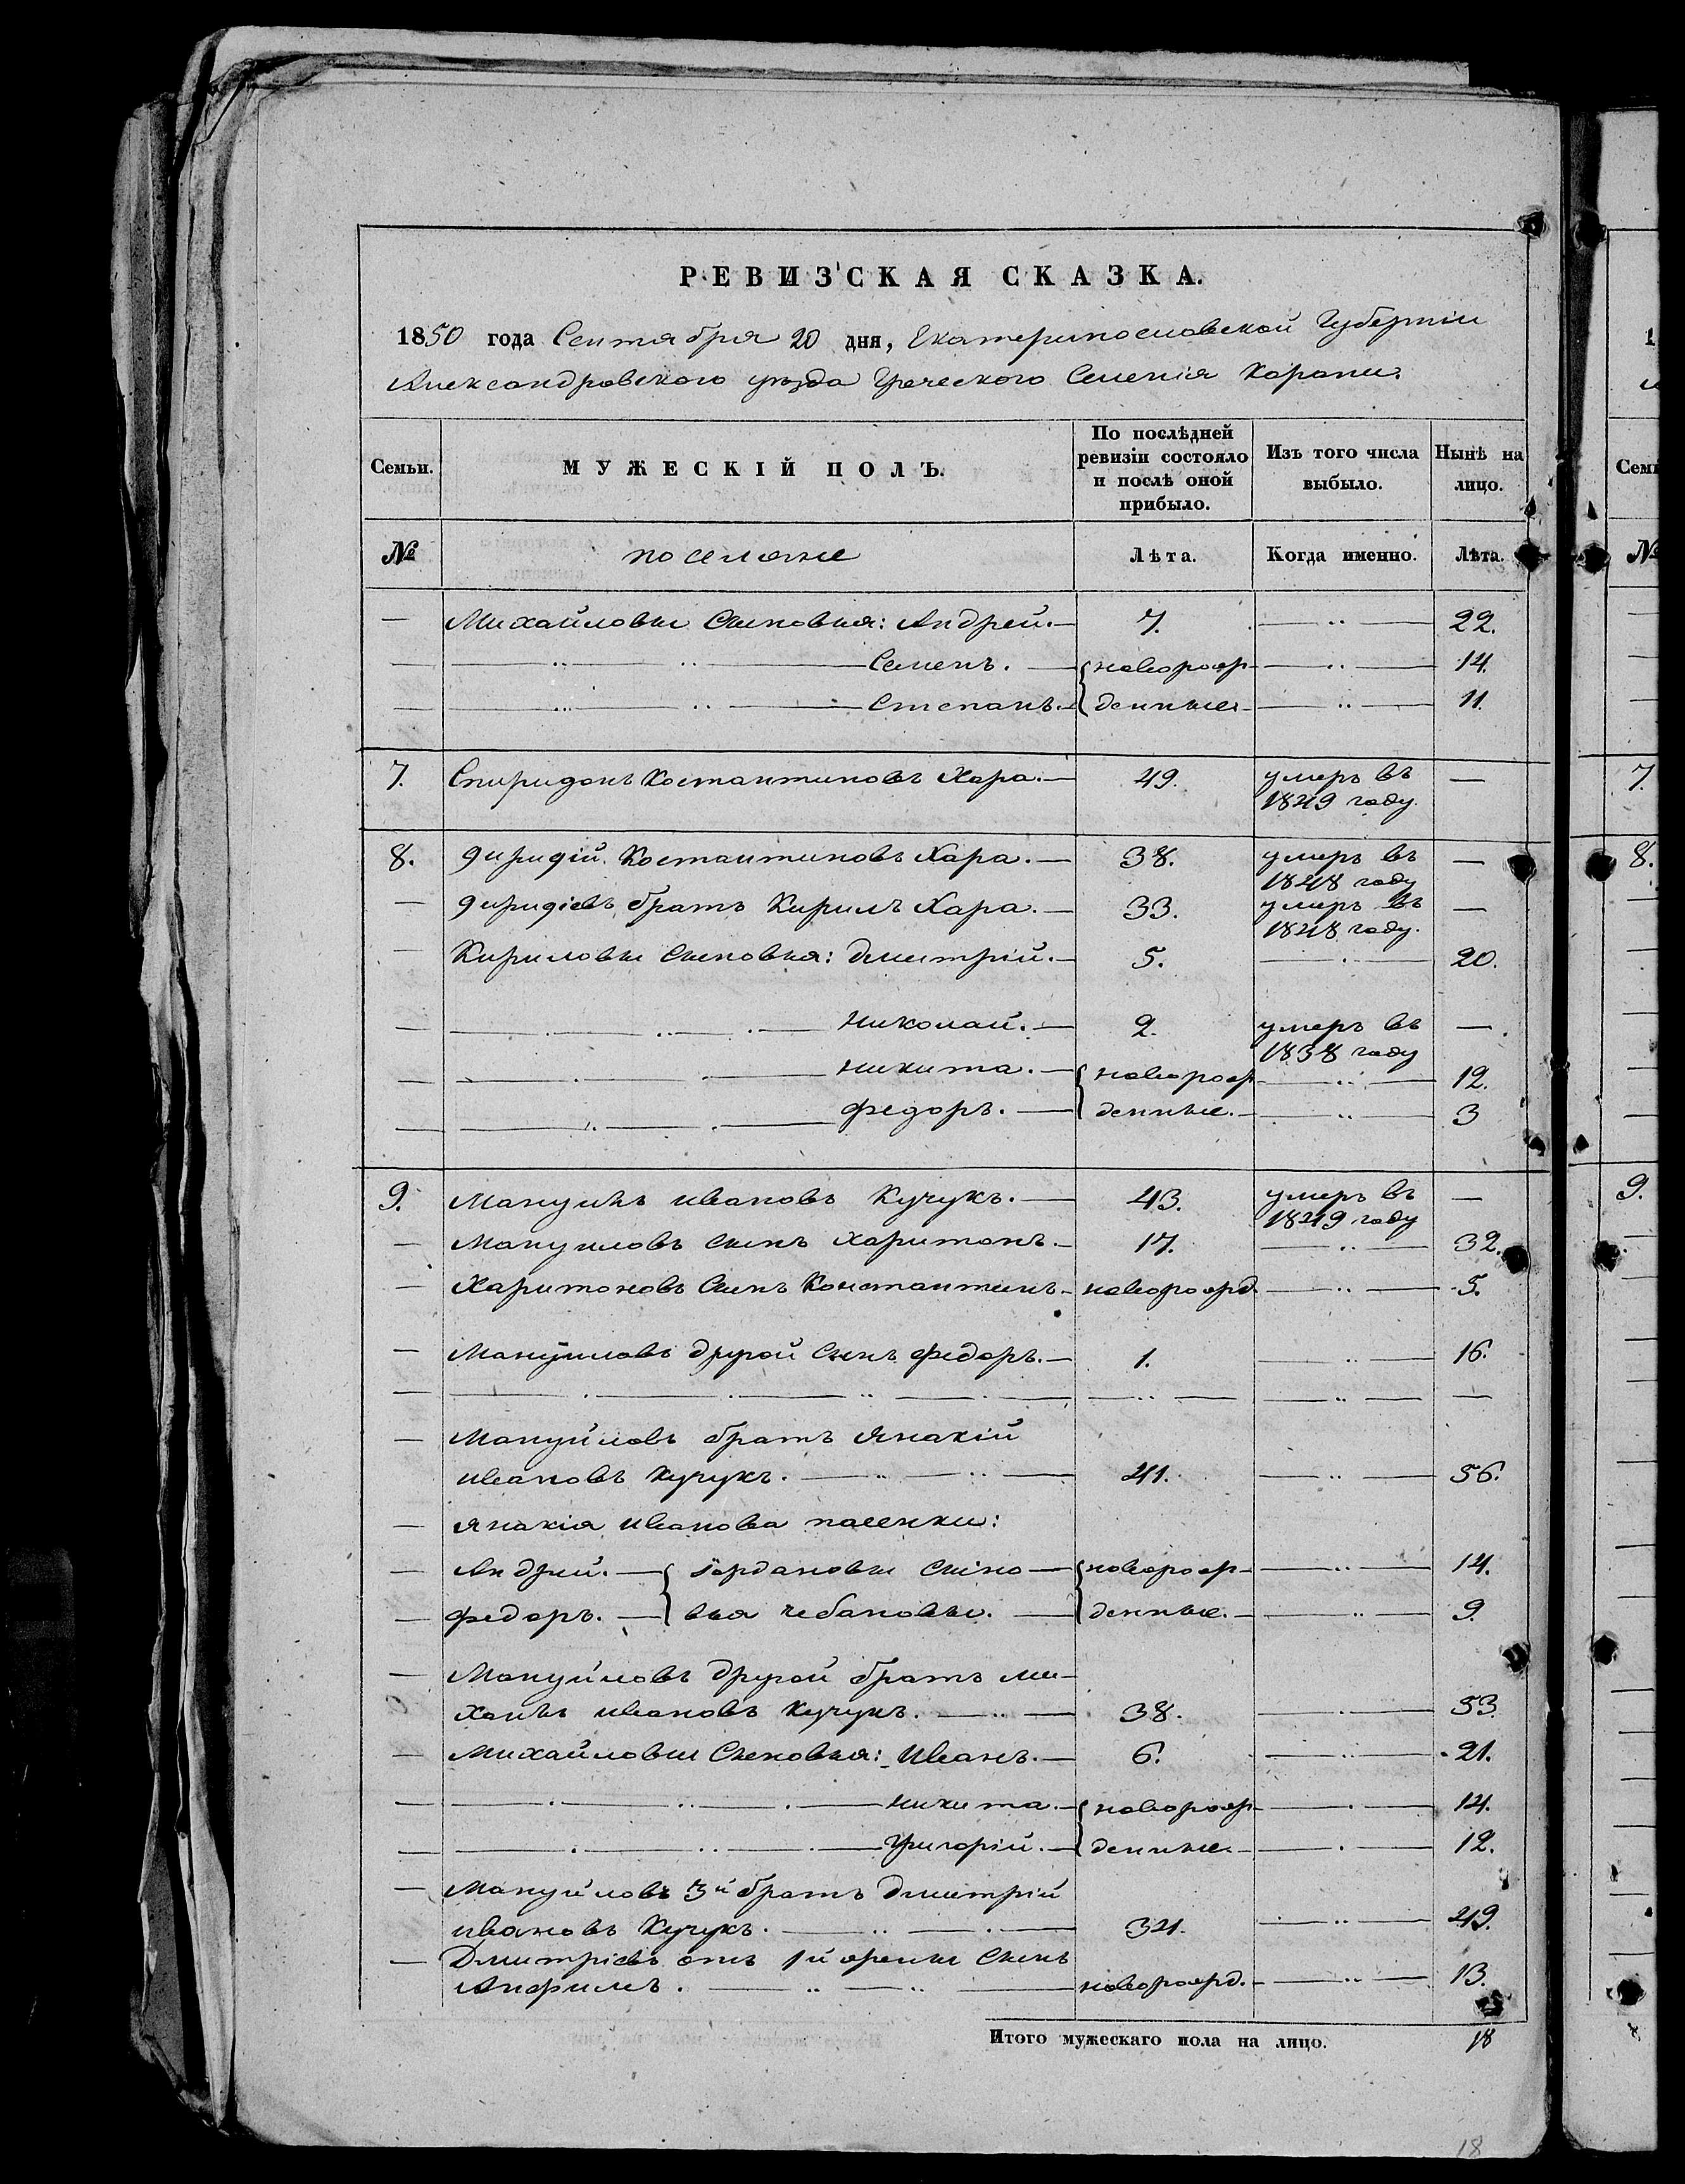 РЕВИЗСКАЯ СКАЗКА.
1850 года Сентября 20 дня, Екатеринославской Губерніи
Александровского уезда Греческого Селенія Карани.
Семьи. МУЖЕСКІЙ ПОЛЪ. По послѣдней ревизіи состояло и послѣ оной прибыло. Изъ того числа выбыло. Нынѣ на лицо.
№ поселяне Лѣта. Когда именно. Лѣта.
— Михайловы Сыновья: Андрей. — 7. — 22.
— Семенъ. — { новорож- — 14.
— Степанъ. — { денные — 11.
7. Спиридонъ Костантиновъ Хара. — 49. умеръ въ 1849 году. —
8. Костантиновъ Хара. — 38. умеръ въ 1848 году —
— братъ Кирилъ Хара. — 33. умеръ въ 1848 году. —
— Кириловы Сыновья: Дмитрій. — 5. — 20.
— Николай. — 2. умеръ въ 1838 году —
— Никита. — { новорож- — 12.
— Федоръ. — { денные. — 3
9. Мануилъ Ивановъ Кучукъ. — 43. умеръ въ 1849 году —
— Мануиловъ Сынъ Харитонъ. — 17. — 32.
— Харитоновъ Сынъ Константинъ. — новорожд. — 5.
— Мануйловъ другой Сынъ Федоръ. — 1. — 16.
— Мануйловъ братъ Янакій
Ивановъ Кучукъ. — 41. — 56.
— Янакія Иванова пасенки:
— Андрей. — { Іорданов��ы Сыно — { новорож- — 14.
— Федоръ. — { вья Чебановы. — { денные. — 9.
— Мануйловъ другой братъ Ми-
хаилъ Ивановъ Кучукъ. — 38. — 53.
— Михайловы Сыновья: Иванъ. — 6. — 21.
— Никита. — { новорож- — 14.
— Григорій. — { денные — 12.
— Мануйловъ 3й братъ Дмитрій
Ивановъ Кучукъ. — 34. — 49.
— Дмитріевъ отъ 1й жены Сынъ
Анфимъ. — новорожд. — 13.
Итого мужескаго пола на лицо. 18
18